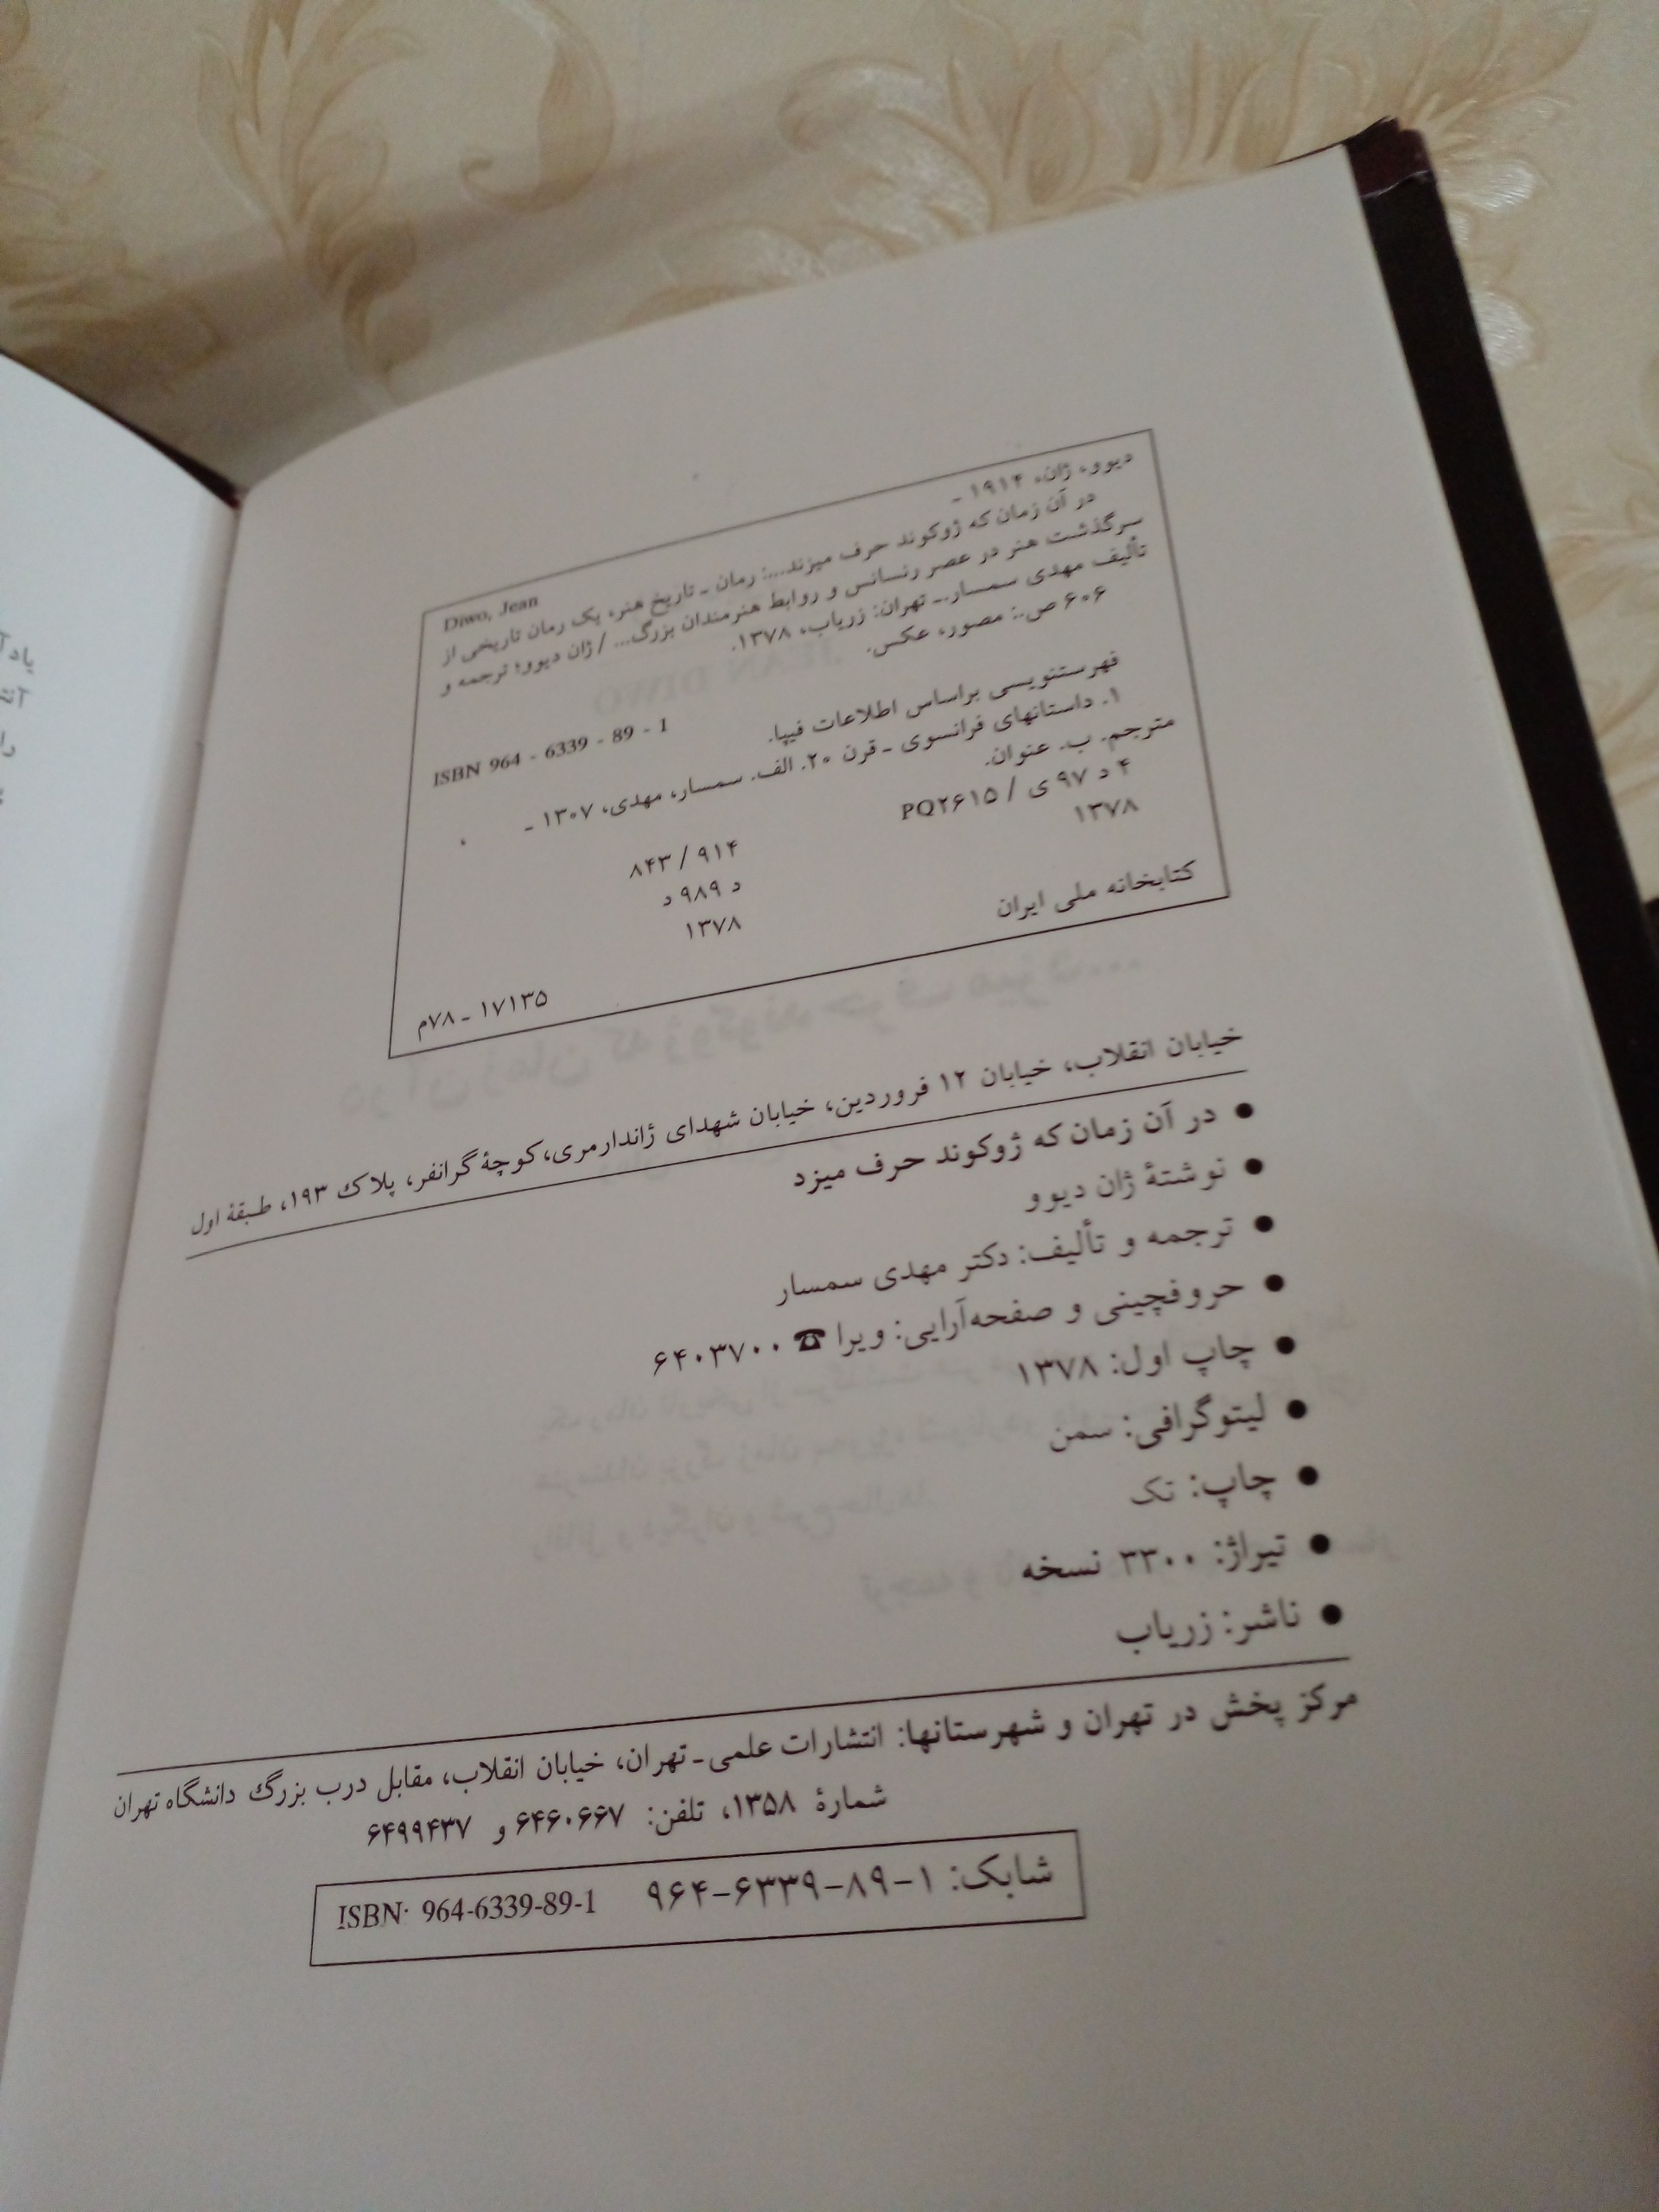 دیوو، ژان، ۱۹۱۴ -
Diwo, Jean
در آن زمان که ژوکوند حرف میزند...: رمان - تاریخ هنر، یک رمان تاریخی از
سرگذشت هنر در عصر رنسانس و روابط هنرمندان بزرگ... / ژان دیوو؛ ترجمه و
تألیف مهدی سمسار.- تهران: زریاب، ۱۳۷۸.
۶۰۶ ص.: مصور، عکس.
ISBN 964 - 6339 - 89 - 1
فهرستنویسی براساس اطلاعات فیپا.
۱. داستانهای فرانسوی - قرن ۲۰. الف. سمسار، مهدی، ۱۳۰۷ - ،
مترجم. ب. عنوان.
۴ د ۹۷ ی / PQ۲۶۱۵
۱۳۷۸
۸۴۳ / ۹۱۴
د ۹۸۹ د
۱۳۷۸
کتابخانه ملی ایران
۱۷۱۳۵ - ۷۸م
خیابان انقلاب، خیابان ۱۲ فروردین، خیابان شهدای ژاندارمری، کوچهٔ گرانفر، پلاک ۱۹۳، طبقهٔ اول
● در آن زمان که ژوکوند حرف میزد
● نوشتهٔ ژان دیوو
● ترجمه و تألیف: دکتر مهدی سمسار
● حروفچینی و صفحه‌آرایی: ویرا ☎ ۶۴۰۳۷۰۰
● چاپ اول: ۱۳۷۸
● لیتوگرافی: سمن
● چاپ: تک
● تیراژ: ۳۳۰۰ نسخه
● ناشر: زریاب
مرکز پخش در تهران و شهرستانها: انتشارات علمی - تهران، خیابان انقلاب، مقابل درب بزرگ دانشگاه تهران
شمارهٔ ۱۳۵۸، تلفن: ۶۴۶۰۶۶۷ و ۶۴۹۹۴۳۷
شابک: ۱-۸۹-۶۳۳۹-۹۶۴ ISBN: 964-6339-89-1